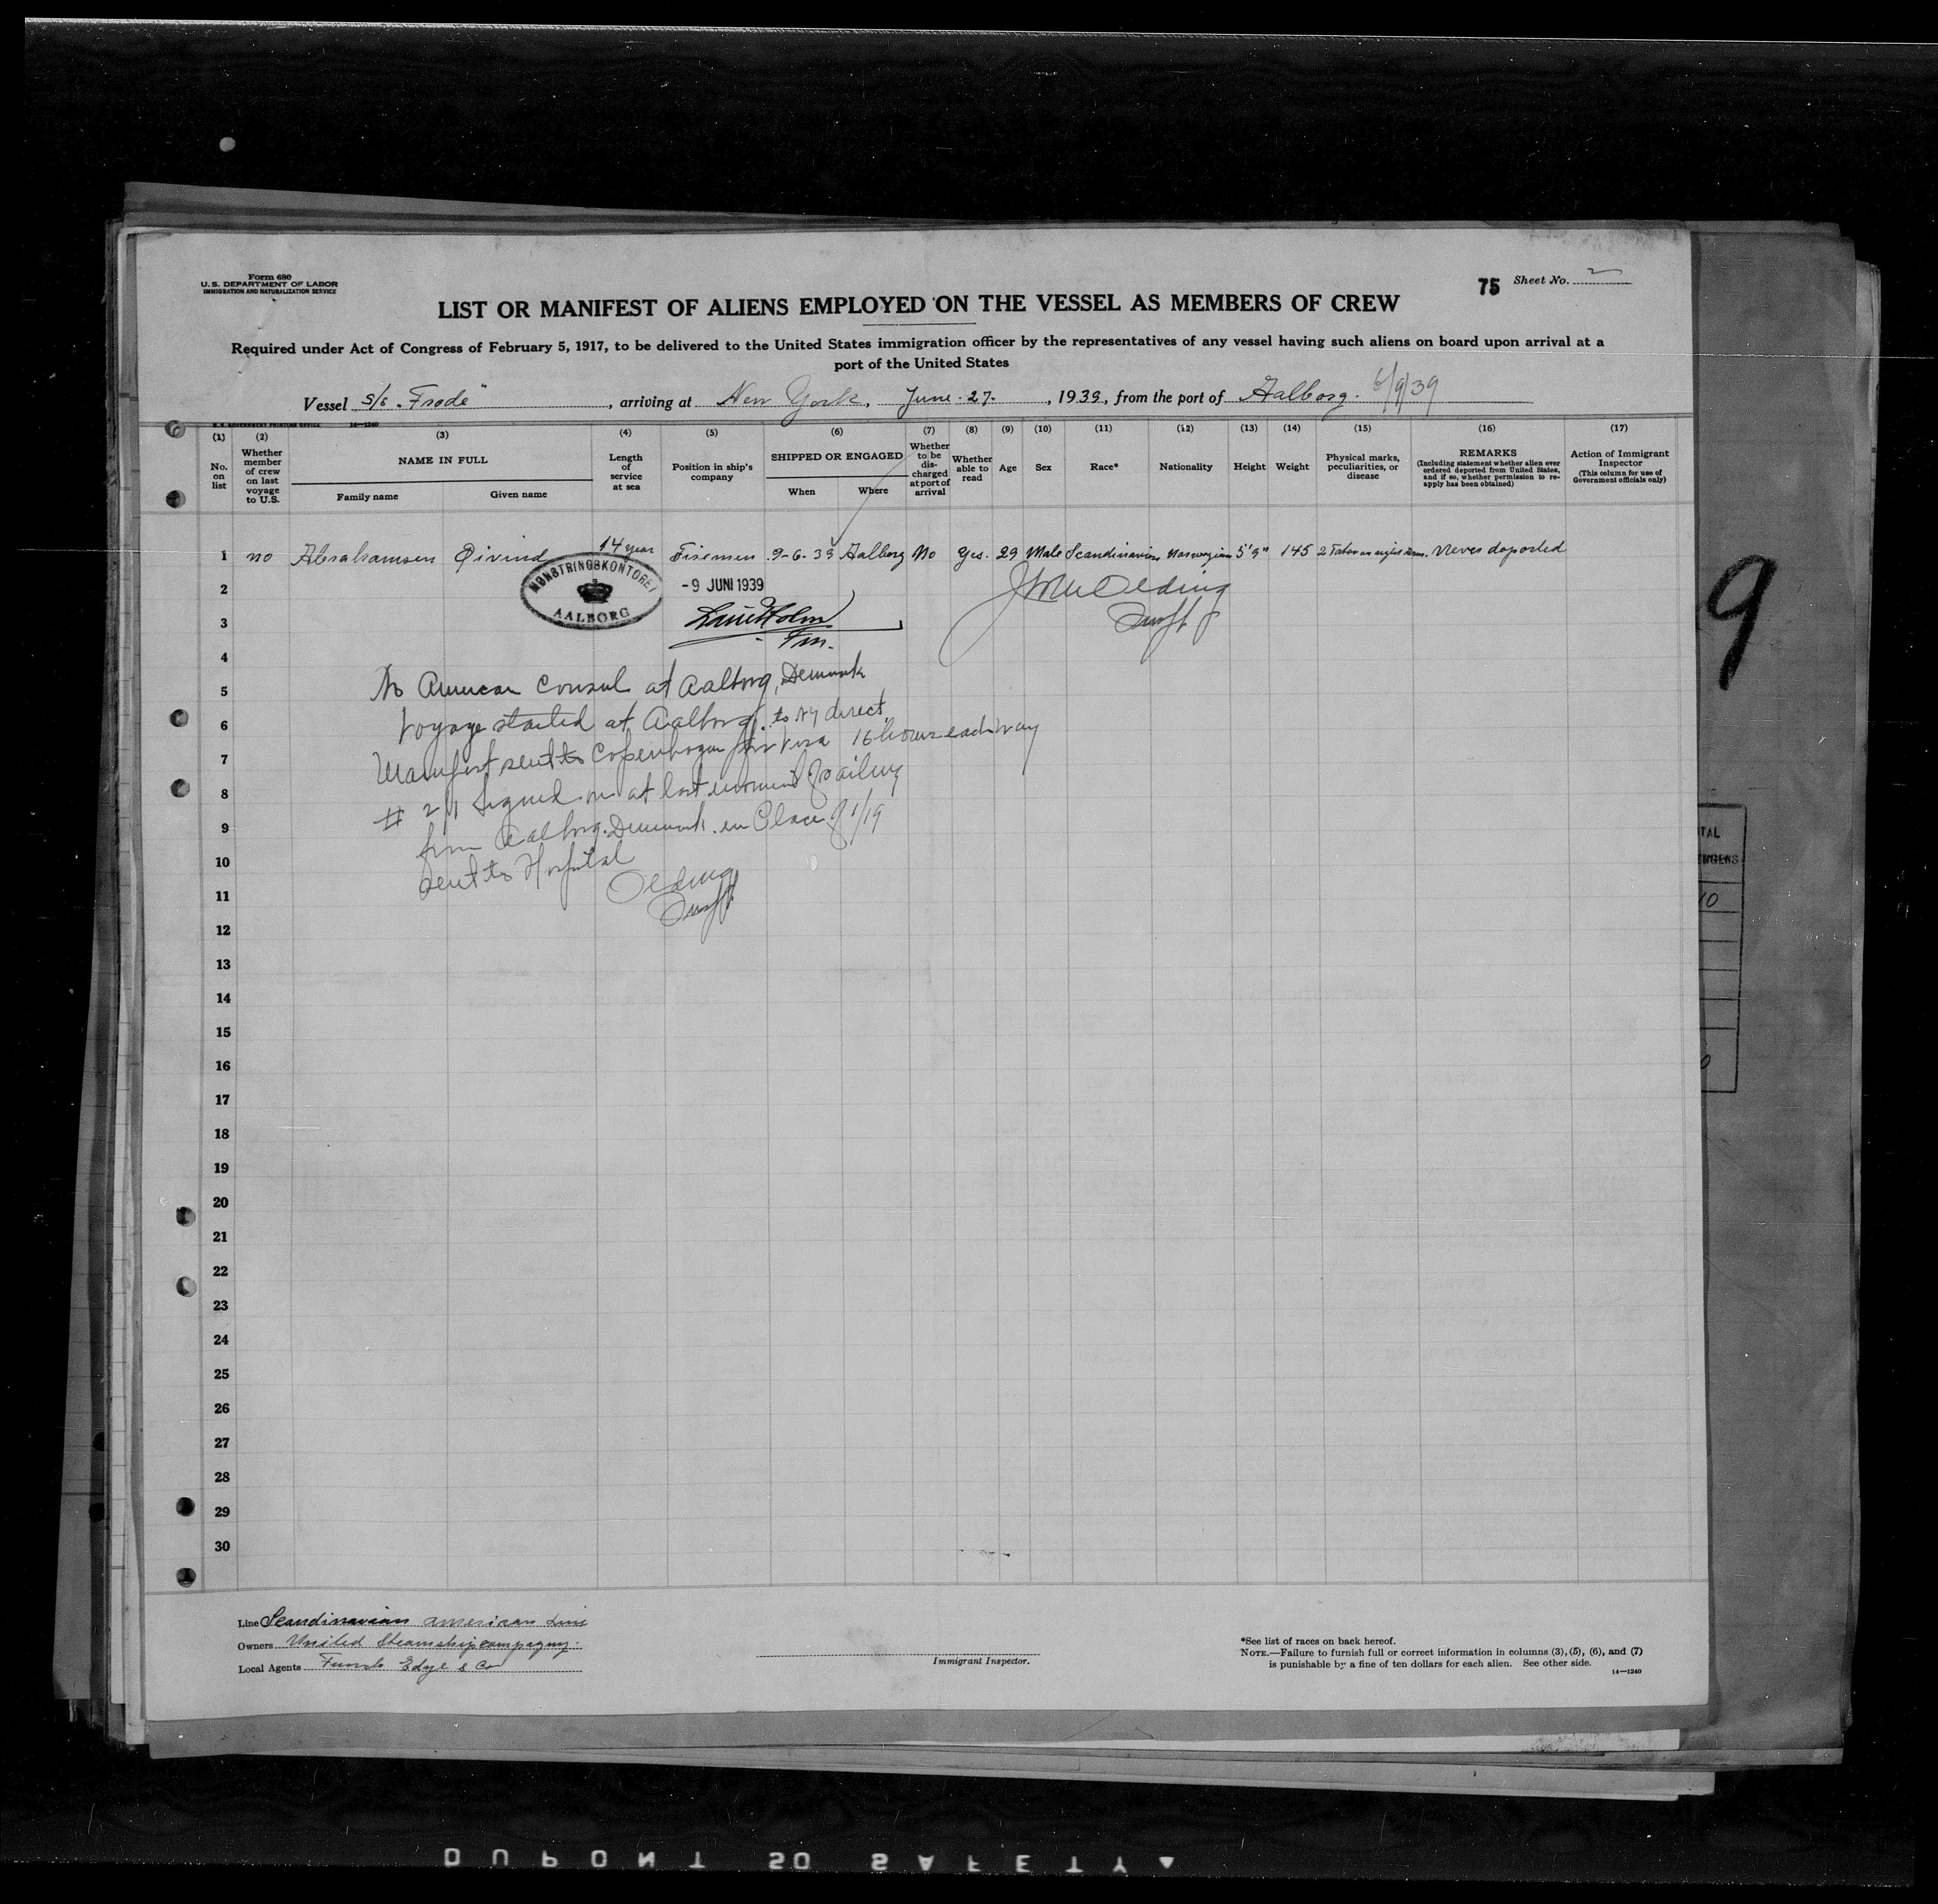 Form 680
U.S. DEPARTMENT OF LABOR
IMMIGRATION AND NATURALIZATION SERVICE
75 Sheet No. 2
LIST OR MANIFEST OF ALIENS EMPLOYED ON THE VESSEL AS MEMBERS OF CREW
Required under Act of Congress of February 5, 1917, to be delivered to the United States immigration officer by the representatives of any vessel having such aliens on board upon arrival at a
port of the United States
Vessel S/s „Frode", arriving at New York, June. 27. , 1939, from the port of Aalborg. 6/9/39
U.S. GOVERNMENT PRINTING OFFICE 14—1240
(1) (2) (3) (4) (5) (6) (7) (8) (9) (10) (11) (12) (13) (14) (15) (16) (17)
No. on list
Whether member of crew on last voyage to U.S.
NAME IN FULL
Family name Given name
Length of service at sea
Position in ship's company
SHIPPED OR ENGAGED
When Where
Whether to be dis-charged at port of arrival
Whether able to read
Age
Sex
Race*
Nationality
Height
Weight
Physical marks, peculiarities, or disease
REMARKS
(Including statement whether alien ever ordered deported from United States, and if so, whether permission to re-apply has been obtained)
Action of Immigrant Inspector
(This column for use of Government officials only)
1 no Abrahamsen Øivind 14 year Firemen 9-6-39 Aalborg No Yes. 29 Male Scandinavien Norwegian 5'9" 145 2 Tatos on right Arm. Never deported
MØNSTRINGSKONTORET
AALBORG
-9 JUNI 1939
2
3
4
5
6
7
8
9
10
11
12
13
14
15
16
17
18
19
20
21
22
23
24
25
26
27
28
29
30
No American Consul at Aalborg, Denmark
Voyage started at Aalborg. to NY direct.
Manifest sent to Copenhagen for visa 16 hours each way
# 2/1 Signed on at last moment sailing
from Aalborg. Denmark. in Place of 1/19
sent to Hospital
Oelding
Line Scandinavian american Line
Owners United Steamshipcompagny.
Local Agents Funch Edye & Co
Immigrant Inspector.
*See list of races on back hereof.
NOTE.—Failure to furnish full or correct information in columns (3), (5), (6), and (7)
is punishable by a fine of ten dollars for each alien. See other side.
14—1240
9
10
DUPONT SO SAFETY